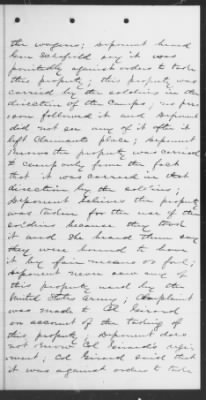 the wagons; deponent heard
Gen Schofield say it was
positively against orders to take
this property; this property was
carried by the soldiers in the
direction of the Camps; no per
son followed it and deponent
did not see any of it after it
left Claimants place; deponent
knows the property was carried
to camp only from the fact
that it was carried in that
direction by the soldiers;
deponent believes the property
was taken for the use of the
soldiers because they took
it and she heard them say
they were bound to have
it by fair means or foul;
deponent never saw any of
this property used by the
United States Army; Complaint
was made to Col Girard
on account of the taking of
this property; deponent does
not know Col Girard's regi
ment; Col Girard said that
it was against orders to take